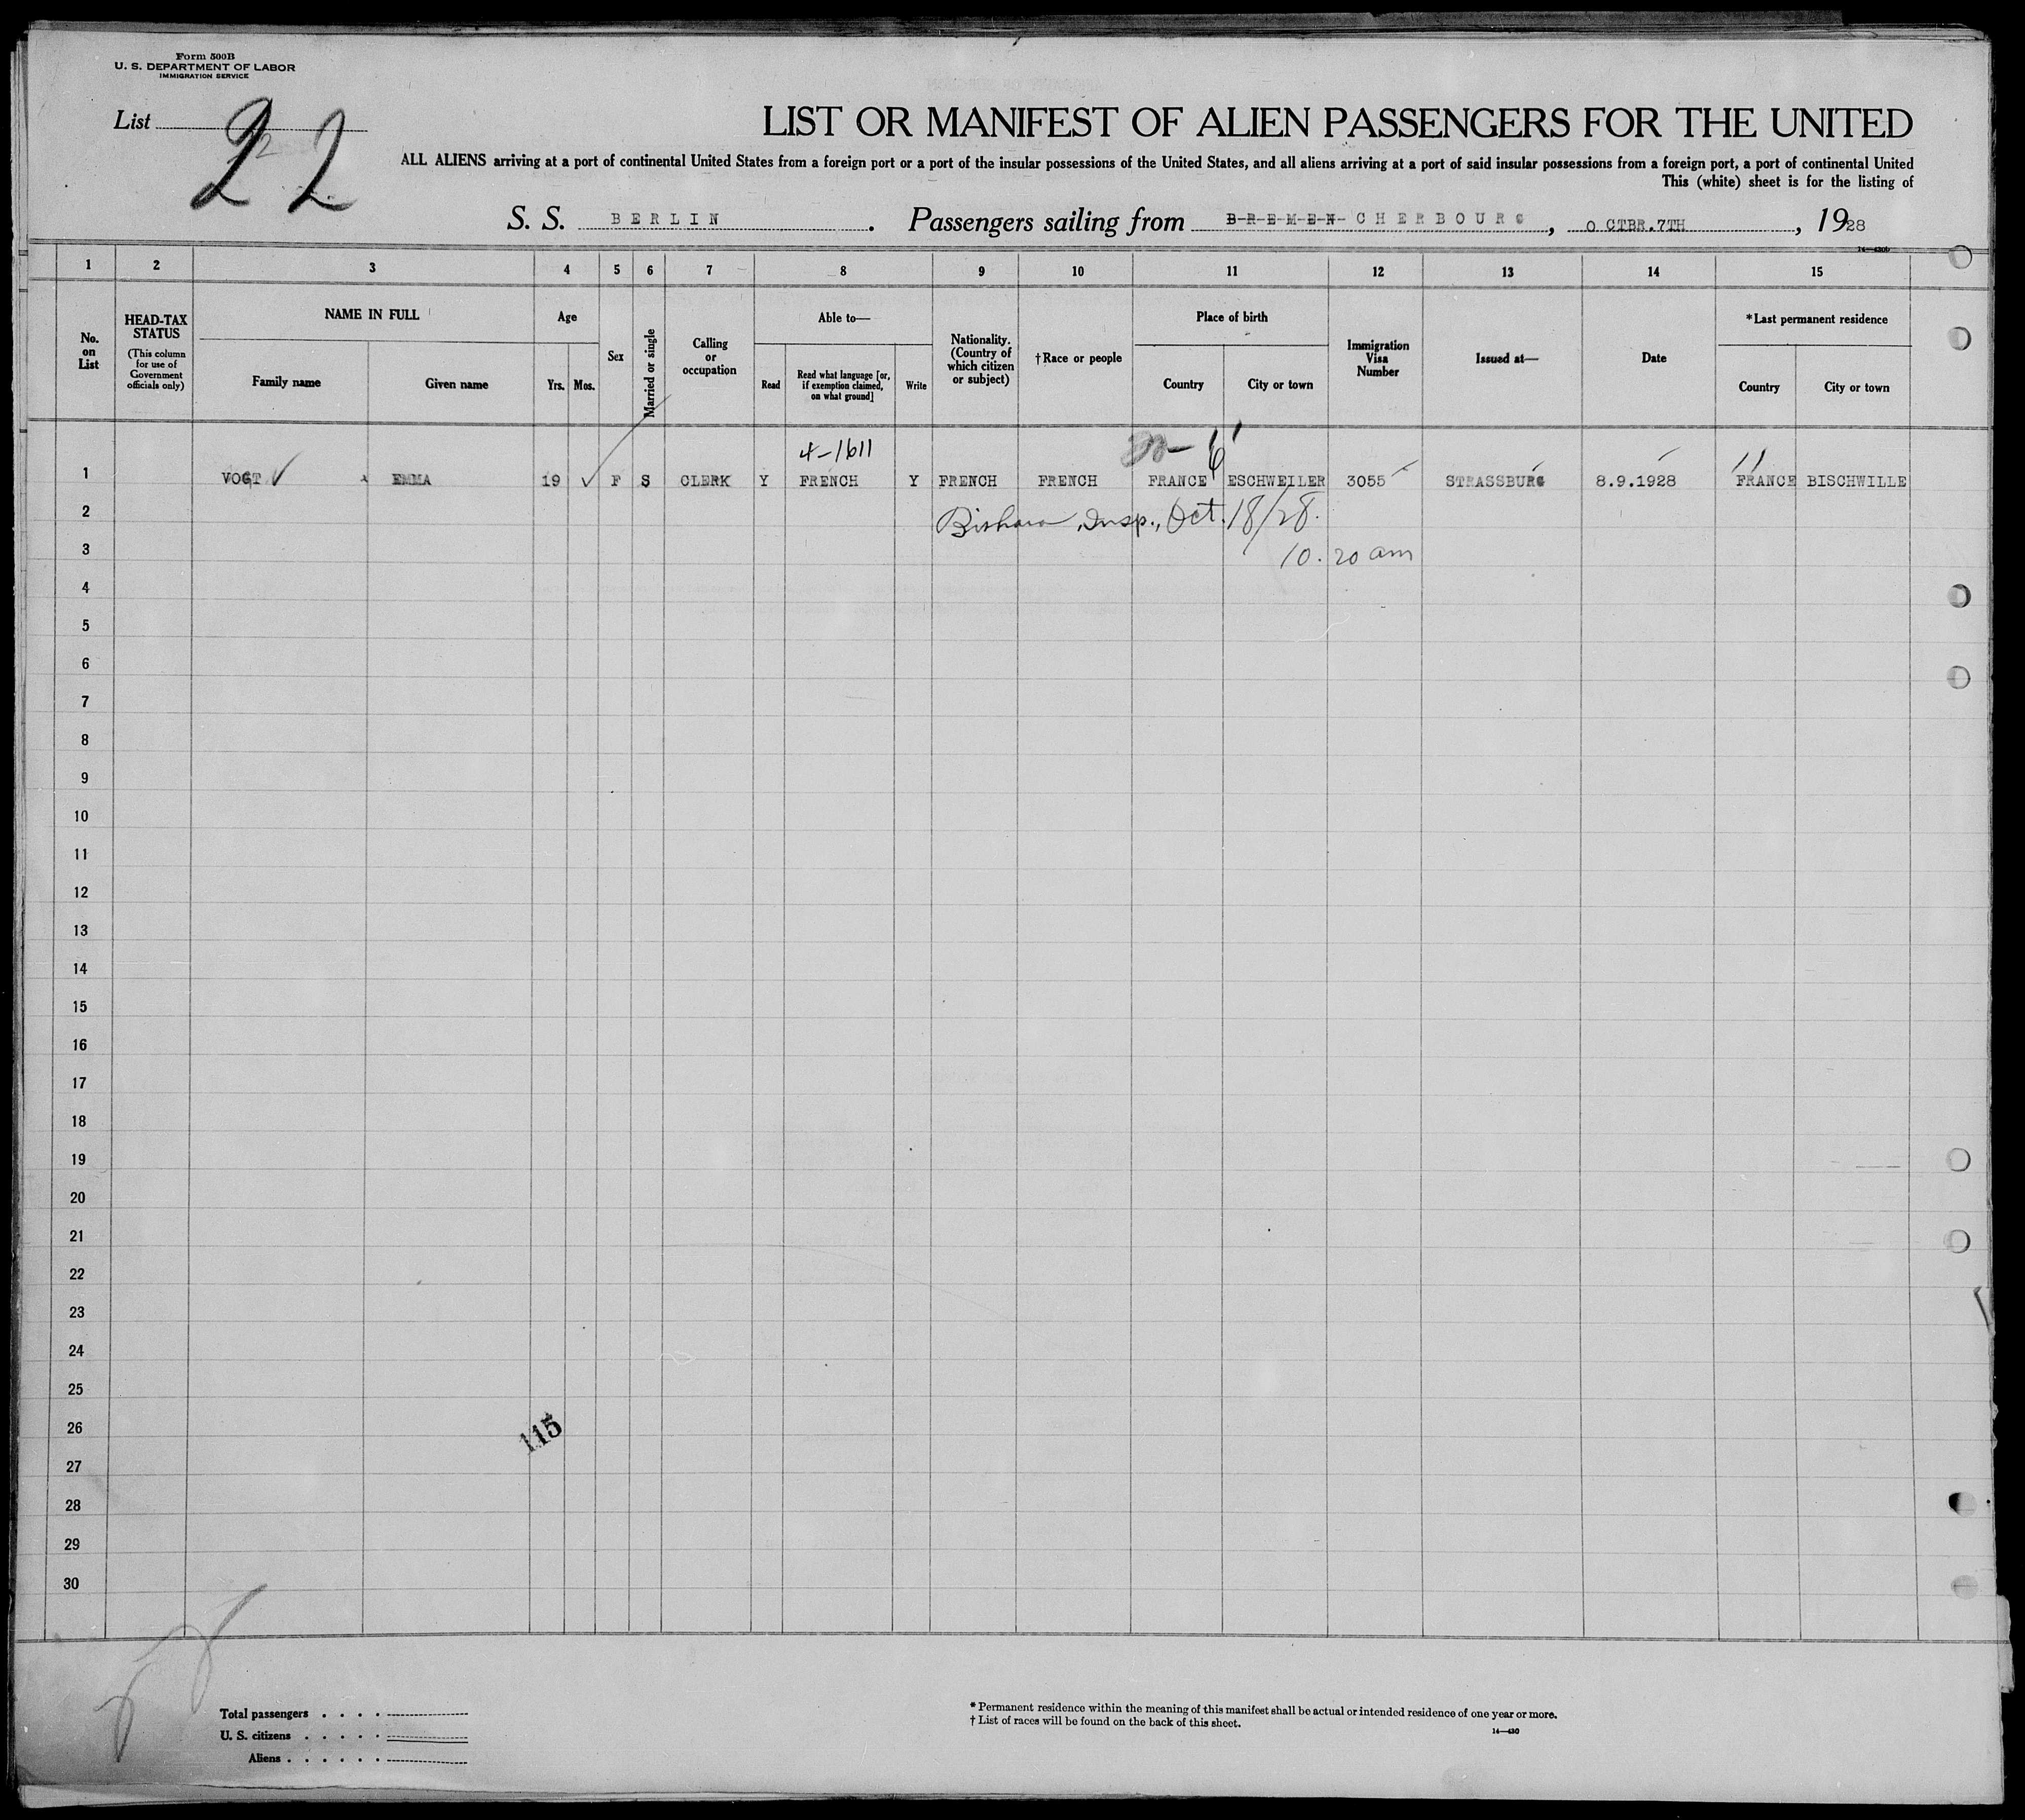 Form 500B
U. S. DEPARTMENT OF LABOR
IMMIGRATION SERVICE
List 22
22
LIST OR MANIFEST OF ALIEN PASSENGERS FOR THE UNITED
ALL ALIENS arriving at a port of continental United States from a foreign port or a port of the insular possessions of the United States, and all aliens arriving at a port of said insular possessions from a foreign port, a port of continental United
This (white) sheet is for the listing of
S. S. BERLIN. Passengers sailing from BREMEN CHERBOURG, O CTBR.7TH, 1928
14—430b
1 2 3 4 5 6 7 8 9 10 11 12 13 14 15
No. on List
HEAD-TAX STATUS
(This column for use of Government officials only)
NAME IN FULL
Family name
Given name
Age
Yrs. Mos.
Sex
Married or single
Calling or occupation
Able to—
Read
Read what language [or, if exemption claimed, on what ground]
Write
Nationality. (Country of which citizen or subject)
†Race or people
Place of birth
Country
City or town
Immigration Visa Number
Issued at—
Date
*Last permanent residence
Country
City or town
4-1611
1 VOGT EMMA 19 F S CLERK Y FRENCH Y FRENCH FRENCH FRANCE ESCHWEILER 3055 STRASSBURG 8.9.1928 FRANCE BISCHWILLE
2 Insp., Oct. 18/28.
3 10.20 am
4
5
6
7
8
9
10
11
12
13
14
15
16
17
18
19
20
21
22
23
24
25
26 115
27
28
29
30
Total passengers . . . .
U. S. citizens . . . . .
Aliens . . . . . .
* Permanent residence within the meaning of this manifest shall be actual or intended residence of one year or more.
† List of races will be found on the back of this sheet.
14—430